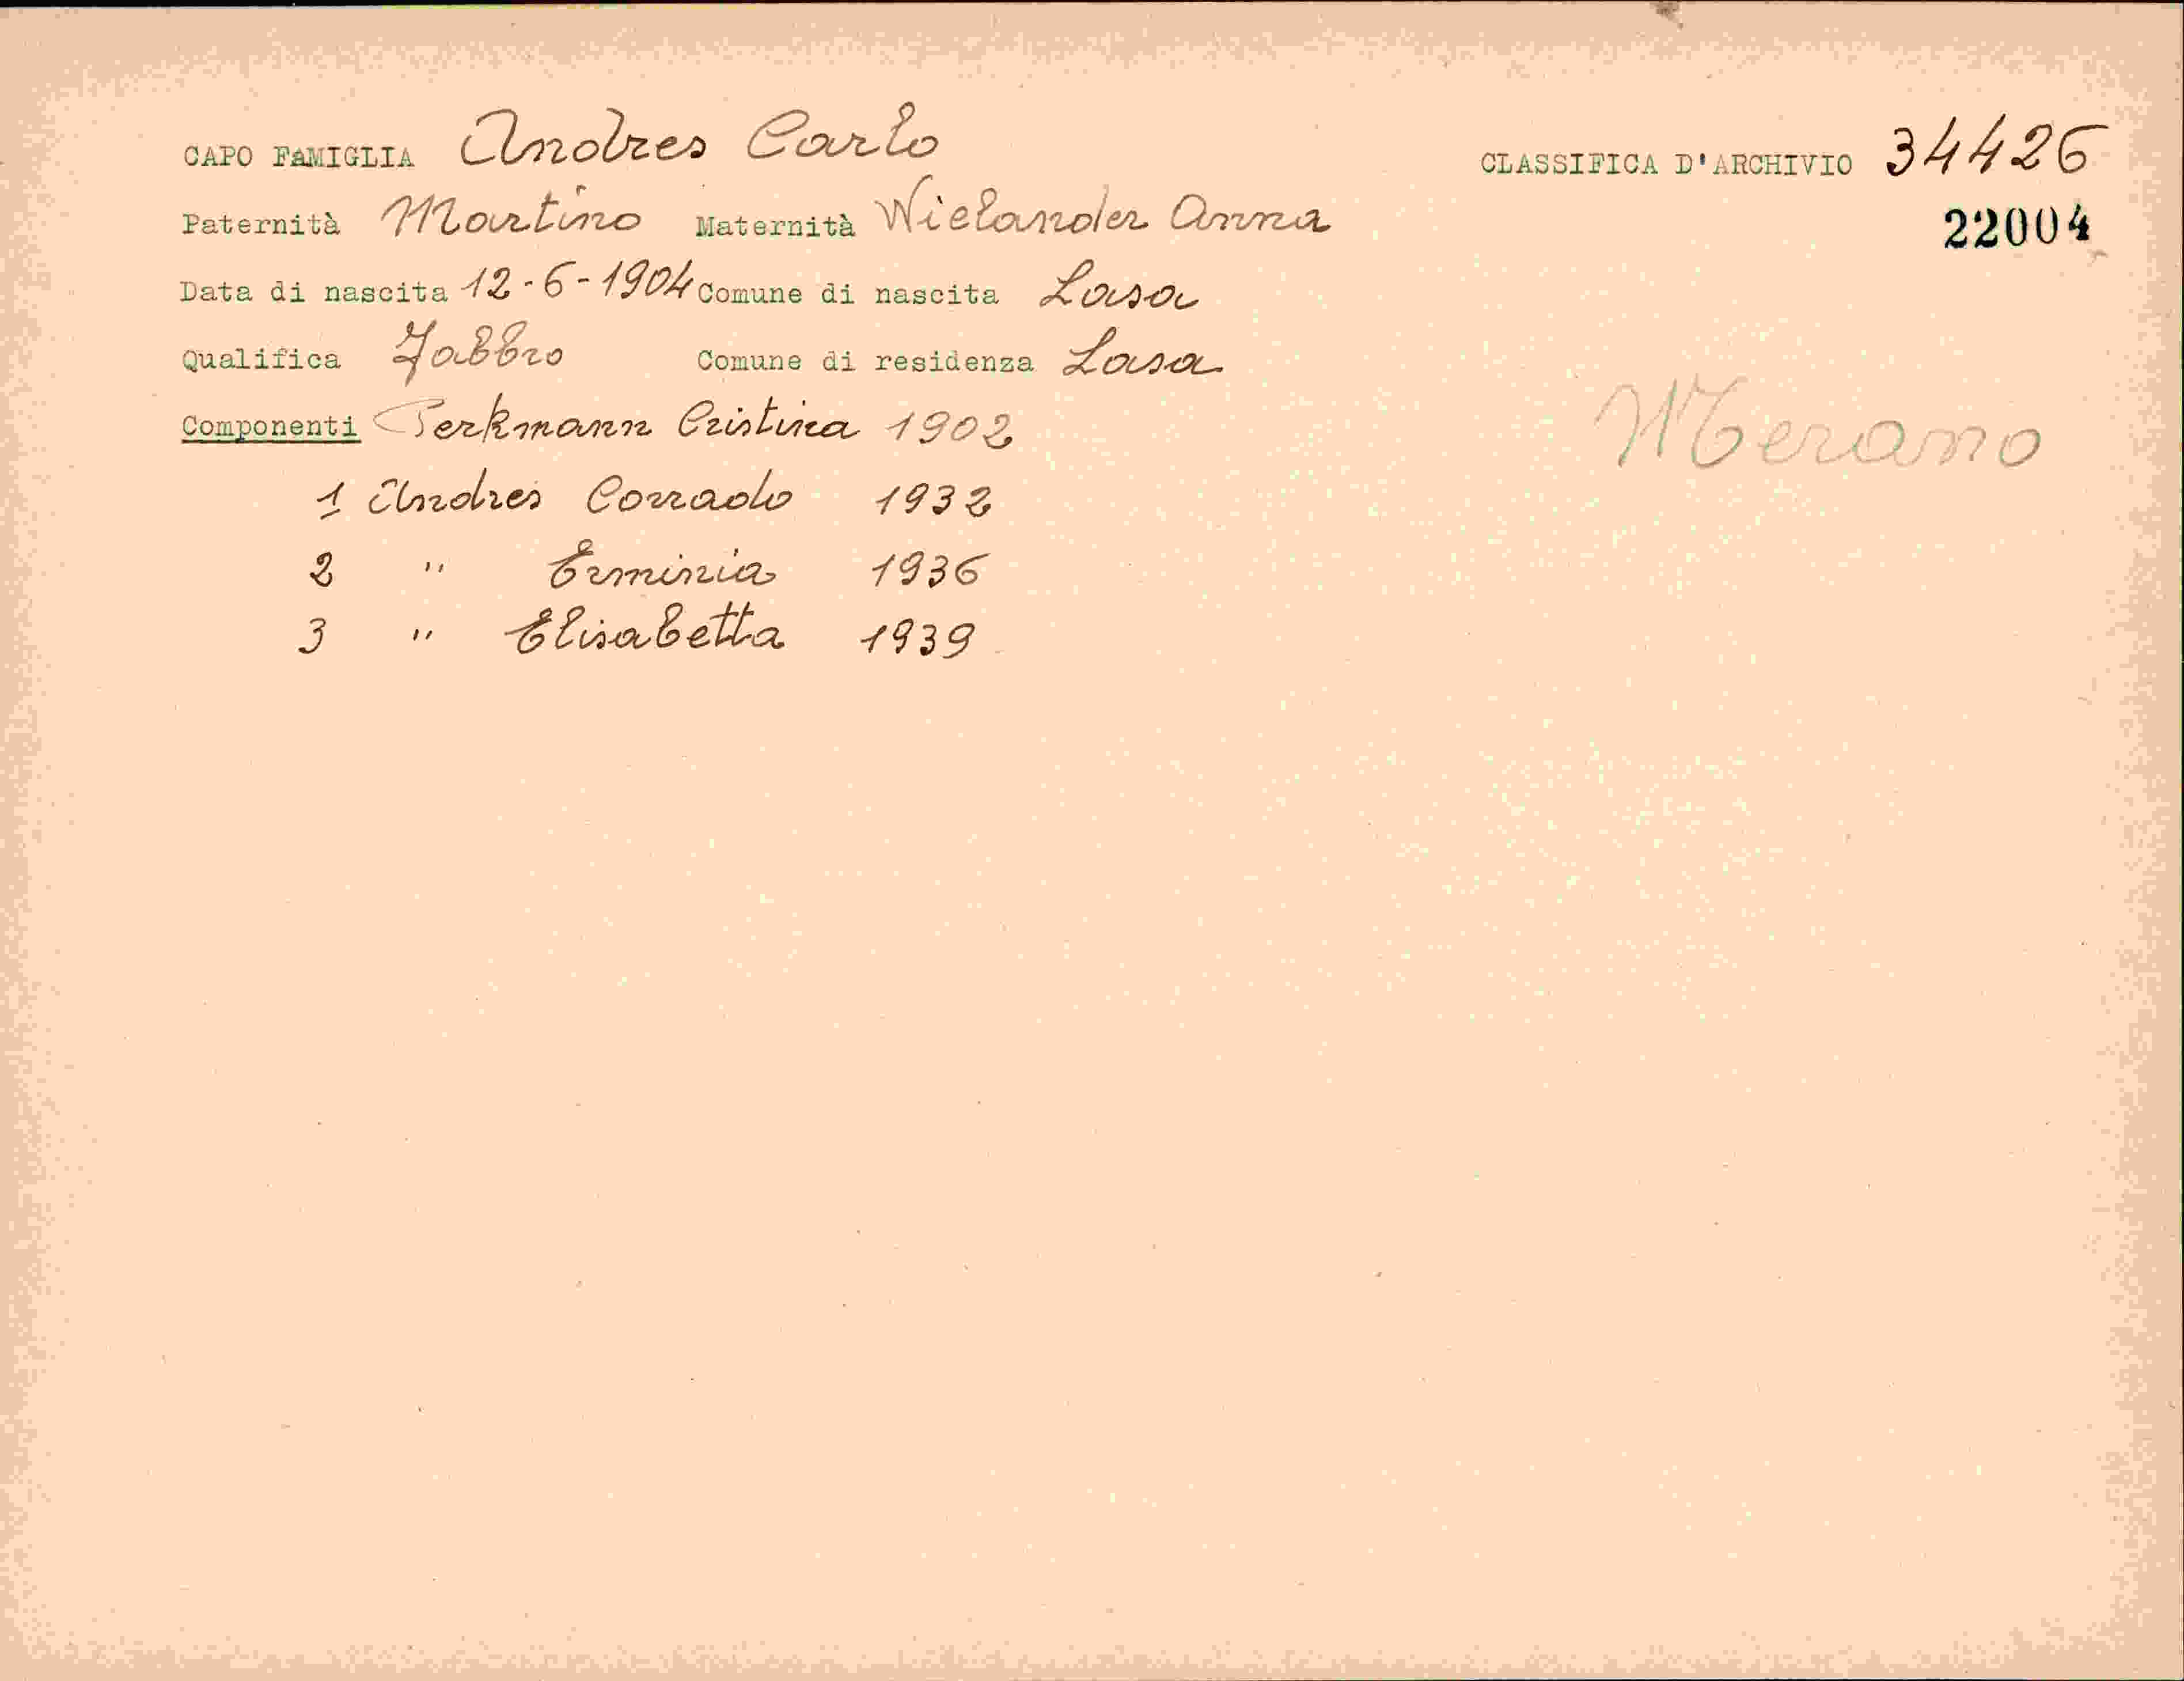 CAPO FAMIGLIA Andres Carlo CLASSIFICA D'ARCHIVIO 34426
Paternità Martino Maternità Wielander Anna 22004
Data di nascita 12-6-1904 Comune di nascita Lasa
Qualifica Fabbro Comune di residenza Lasa
Componenti Perkmann Cristina 1902
Merano
1 Andres Corrado 1932
2 " Erminia 1936
3 " Elisabetta 1939